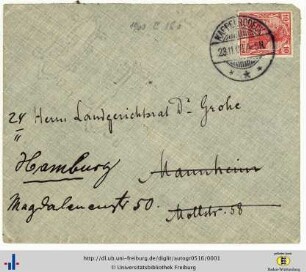 KAPPELRODECK
23.11.
10
24
Herrn Landgerichtsrat Dr Grohe
Hamburg
Mannheim
Magdalenenstr 50.
Moltkestr. 58
http://dl.ub.uni-freiburg.de/diglit/autogr0516/0001
© Universitätsbibliothek Freiburg